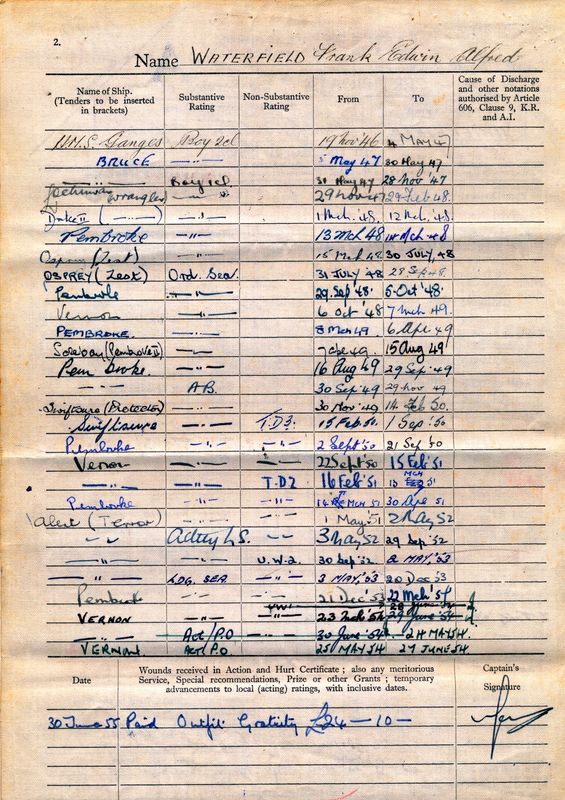 2.
Name WATERFIELD Frank Edwin Alfred
Name of Ship. (Tenders to be inserted in brackets) Substantive Rating Non-Substantive Rating From To Cause of Discharge and other notations authorised by Article 606, Clause 9, K.R. and A.I.
H.M.S. Ganges Boy 2cl 19 Nov 46 4 MAY 47
BRUCE —"— 5 May 47 30 May 47
Boy 1cl 31 May 47 28 Nov '47
Wrangler —"— 29 Nov 47 29 Feb 48.
Drake II (—"—) —"— 1 Mch. 48. 12 Mch. 48.
Pembroke —"— 13 Mch 48 14 Mch 48
Osprey (Zest) —"— 15 Mch 48 30 JULY, 48
OSPREY (Zest) Ord. Sea. 31 JULY '48 28 Sep 48.
Pembroke —"— 29. Sep '48. 5 Oct '48.
Vernon —"— 6 Oct '48 7 Mch 49.
PEMBROKE. —"— 8 Mch 49 6 Apl 49
(Pembroke II) —"— 7 Apl 49. 15 Aug 49
Pembroke —"— 16 Aug 49 29 Sep '49
—"— A.B. 30 Sep '49 29 Nov 49
Swiftsure (Protector) —"— 30 Nov '49 14 Feb 50.
Swiftsure —"— T.D3. 15 Feb 50. 1 Sep '50
Pembroke —"— —"— 2 Sept '50 21 Sep '50
Vernon —"— —"— 22 Sept '50 15 Feb '51
—"— —"— T.D2 16 Feb '51 13 MCH '51
Pembroke —"— —"— 14 MCH 51 30 Apl 51
Alert (Terror) —"— —"— 1 May '51 2 May 52
—"— Actg L.S. —"— 3 May 52 29 Sep '52
—"— —"— U.W.2. 30 Sep '52 2 MAY, '53
—"— LDG. SEA —"— 3 MAY, '53 20 Dec '53
Pembroke —"— —"— 21 Dec '53 22 Mch '54
VERNON —"— —"— 23 Mch '54 29 June '54
—"— Act/P.O —"— 30 June '54 24 MAY 54.
VERNON. Act P.O. 25 MAY 54 27 JUNE 54
Date Wounds received in Action and Hurt Certificate ; also any meritorious Service, Special recommendations, Prize or other Grants ; temporary advancements to local (acting) ratings, with inclusive dates. Captain's Signature
30 June 55 Paid Outfit Gratuity £24 — 10 —